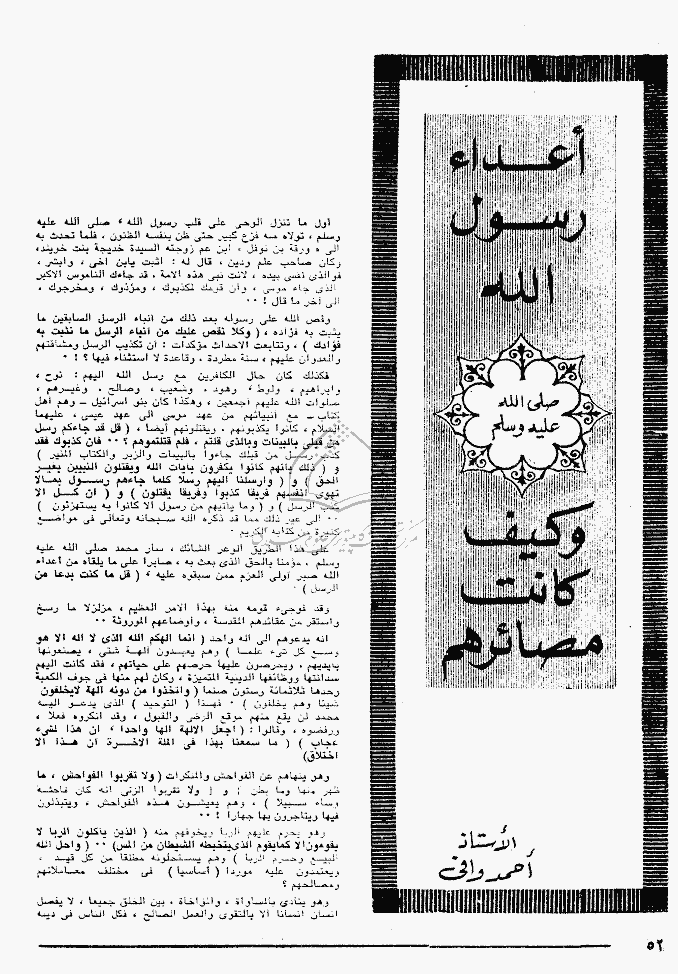 أعداء
رسول
الله
صلى الله
عليه وسلم
وكيف
كانت
مصائرهم
الأستاذ
أحمد وافي
أول ما تنزل الوحى على قلب رسول الله صلى الله عليه
وسلم ، تولاه منه فزع كبير حتى ظن بنفسه الظنون ، فلما تحدث به
الى « ورقة بن نوفل » ابن عم زوجته السيدة خديجة بنت خويلد،
وكان صاحب علم ودين ، قال له : اثبت يابن أخى ، وابشر ،
فوالذى نفسى بيده ، لانت نبى هذه الامة ، قد جاءك الناموس الاكبر
الذى جاء موسى ، وان قومك مكذبوك ، ومؤذوك ، ومخرجوك ،
الى آخر ما قال ! ٠٠
وقص الله على رسوله بعد ذلك من أنباء الرسل السابقين ما
يثبت به فؤاده ، ( وكلا نقص عليك من أنباء الرسل ما نثبت به
فؤادك ) ، وتتابعت الاحداث مؤكدات : أن تكذيب الرسل ومشاقتهم
والعدوان عليهم ، سنة مطردة ، وقاعدة لا استثناء فيها ؟ ! ٠
فكذلك كان حال الكافرين مع رسل الله اليهم : نوح ،
وابراهيم ، ولوط ، وهود ، وشعيب ، وصالح ، وغيرهم ،
صلوات الله عليهم أجمعين ، وهكذا كان بنو اسرائيل ـ وهم أهل
كتاب ـ مع أنبيائهم من عهد موسى الى عهد عيسى ، عليهما
السلام ، كانوا يكذبونهم ، ويقتلونهم أيضا ، ( قل قد جاءكم رسل
من قبلى بالبينات وبالذى قلتم ، فلم قتلتموهم ؟ ٠٠ فان كذبوك فقد
كذب رسل من قبلك جاءوا بالبينات والزبر والكتاب المنير )
و ( ذلك بأنهم كانوا يكفرون بآيات الله ويقتلون النبيين بغير
الحق ) و ( وارسلنا اليهم رسلا كلما جاءهم رســـول بمـــالا
تهوى أنفسهم فريقا كذبوا وفريقا يقتلون ) و ( ان كـــل الا
كذب الرسل ) و ( وما يأتيهم من رسول الا كانوا به يستهزئون )
٠٠ الى غير ذلك مما قد ذكره الله سبحانه وتعالى فى مواضع
كثيرة من كتابه الكريم ٠
على هذا الطريق الوعر الشائك ، سار محمد صلى الله عليه
وسلم ، مؤمنا بالحق الذى بعث به ، صابرا على ما يلقاه من أعداء
الله صبر أولى العزم ممن سبقوه عليه ، ( قل ما كنت بدعا من
الرسل ) ٠
وقد فوجىء قومه منه بهذا الامر العظيم ، مزلزلا ما رسخ
واستقر من عقائدهم المقدسة ، وأوضاعهم الموروثة ٠٠
انه يدعوهم الى اله واحد ( انما الهكم الله الذى لا اله الا هو
وسع كل شىء علما ) وهم يعبدون آلهة شتى ، يصنعونها
بأيديهم ، ويحرصون عليها حرصهم على حياتهم ، فقد كانت اليهم
سدانتها ووظائفها الدينية المتميزة ، وكان لهم منها فى جوف الكعبة
وحدها ثلاثمائة وستون صنما ( واتخذوا من دونه آلهة لايخلقون
شيئا وهم يخلقون ) ٠ فهذا ( التوحيد ) الذى يدعو اليه
محمد لن يقع منهم موقع الرضى والقبول ، وقد أنكروه فعلا ،
ورفضوه ، وقالوا : ( أجعل الآلهة الها واحدا ، ان هذا لشىء
عجاب ) ( ما سمعنا بهذا فى الملة الآخــرة ان هــذا الا
اختلاق)
وهو ينهاهم عن الفواحش والمنكرات ( ولا تقربوا الفواحش ، ما
ظهر منها وما بطن ) و ( ولا تقربوا الزنى انه كان فاحشة
وساء سبيلا ) ، وهم يعيشــون هــذه الفواحش ، ويتبذلون
فيها ويتاجرون بها جهارا ! ٠٠
وهو يحرم عليهم الربا ويخوفهم منه ( الذين يأكلون الربا لا
يقومون الا كما يقوم الذى يتخبطه الشيطان من المس) ٠٠ ( وأحل الله
البيع وحــرم الربا ) وهم يستحلونه مطلقا من كل قيــد ،
ويعتمدون عليه موردا ( أساسيا ) فى مختلف معاملاتهم
ومصالحهم ؟
وهو ينادى بالمساواة ، والمؤاخاة ، بين الخلق جميعا ، لا يفضل
انسان انسانا الا بالتقوى والعمل الصالح ، فكل الناس فى دينه
٥٢